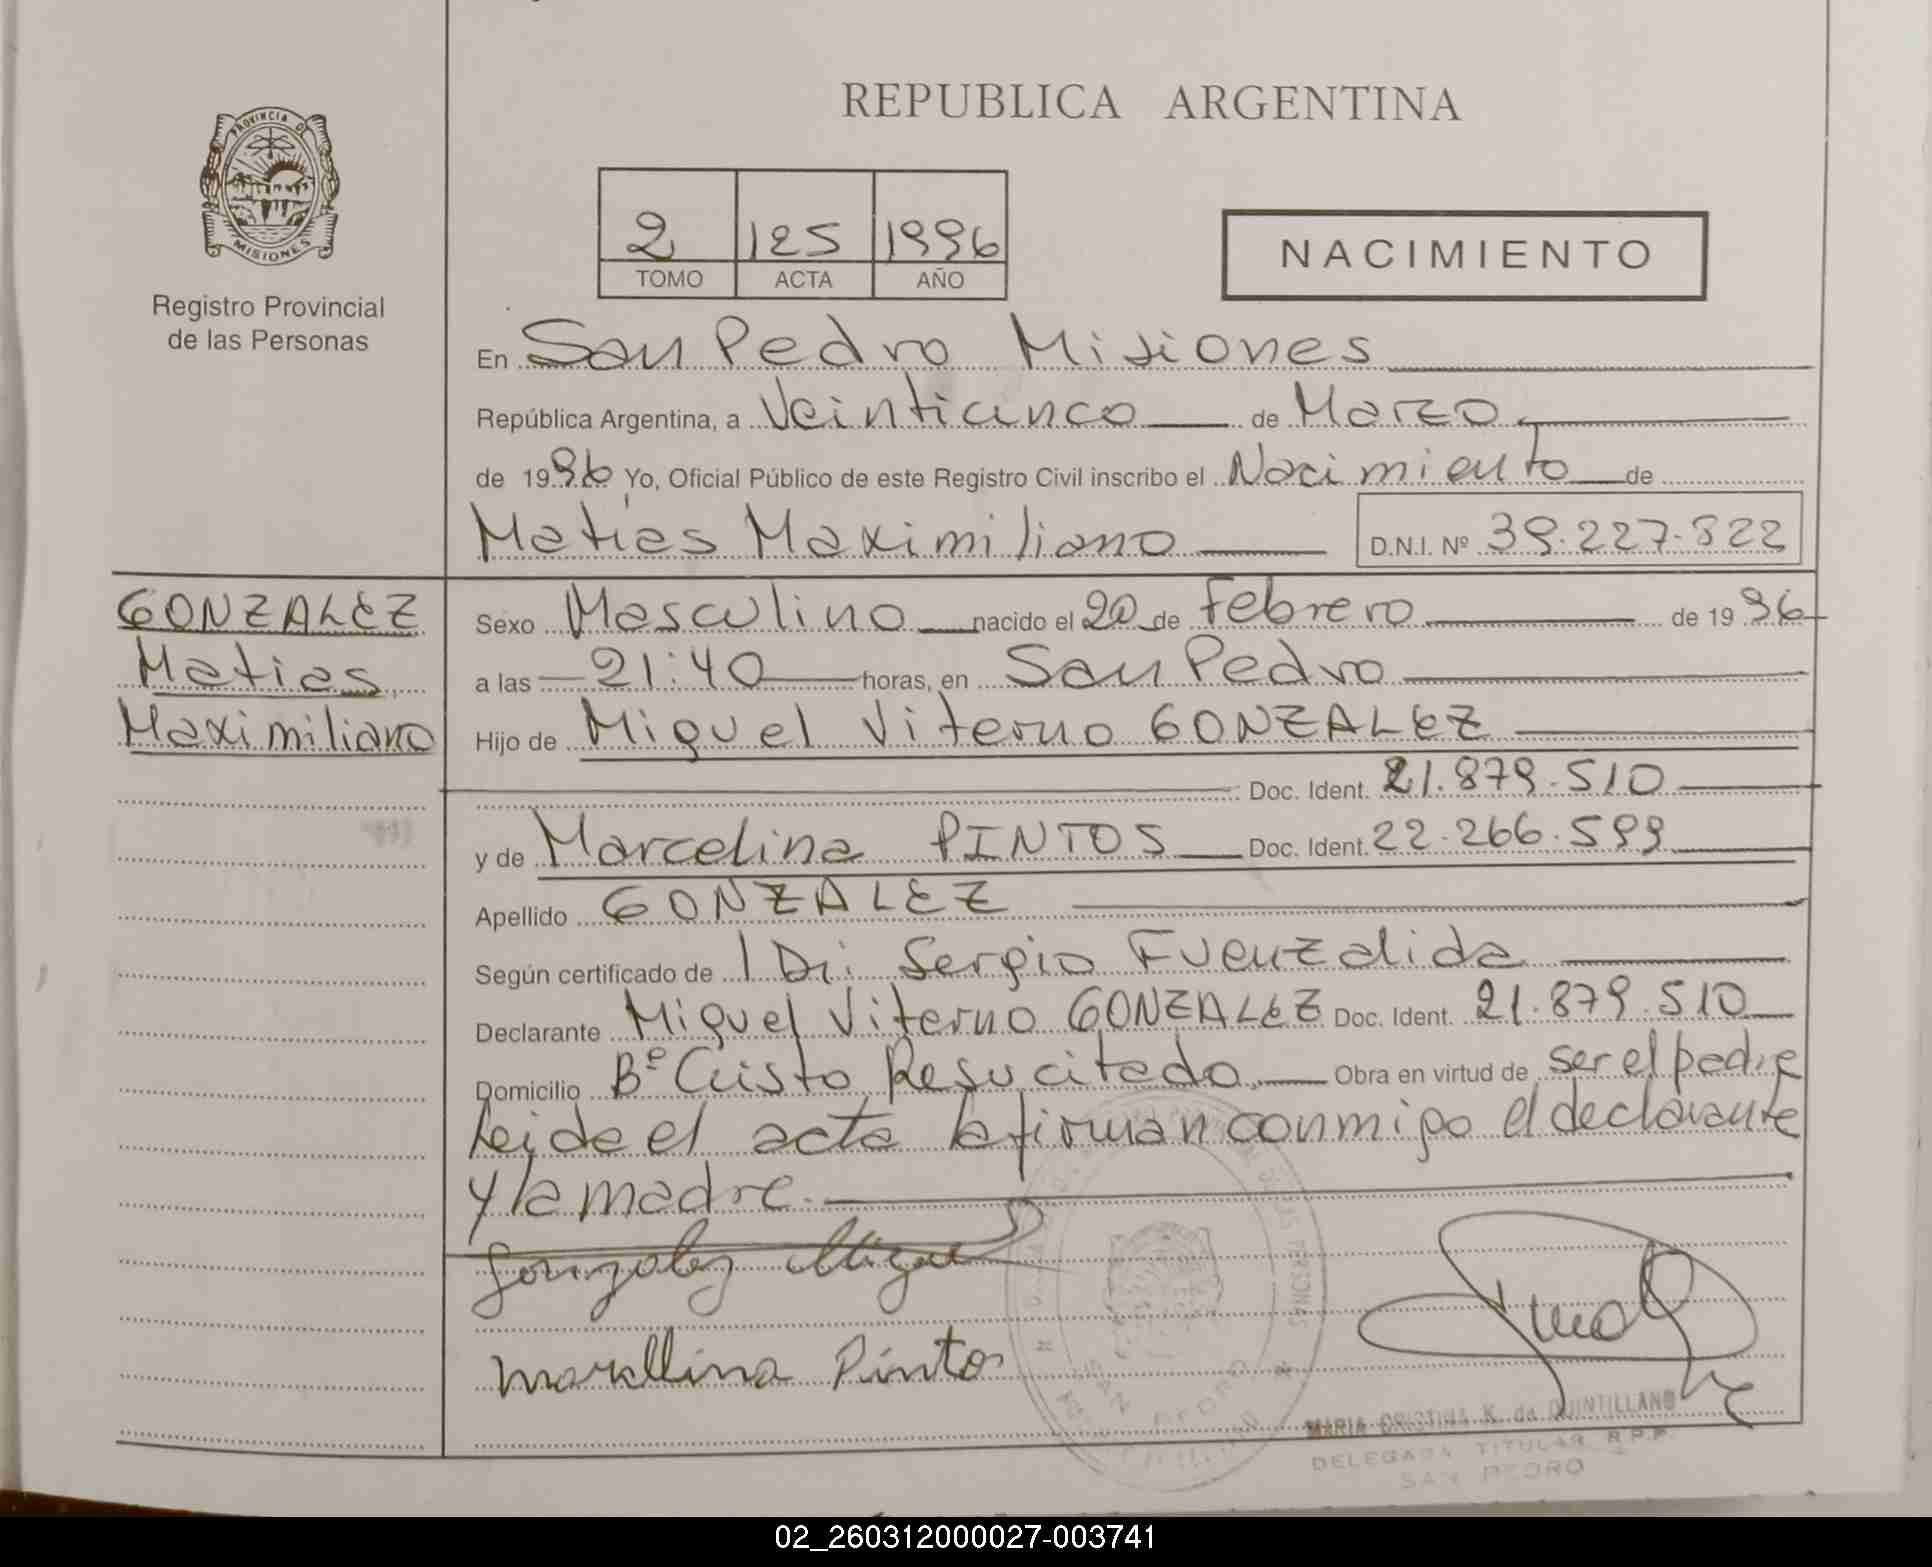 REPUBLICA ARGENTINA
PROVINCIA DE
MISIONES
Registro Provincial
de las Personas
2 125 1996
TOMO ACTA AÑO
NACIMIENTO
En San Pedro Misiones
República Argentina, a Veinticinco de Marzo
de 1996 Yo, Oficial Público de este Registro Civil inscribo el Nacimiento de
Matias Maximiliano D.N.I. Nº 39.227.822
GONZALEZ
Matias
Maximiliano
Sexo Masculino nacido el 20 de Febrero de 1996
a las 21:40 horas, en San Pedro
Hijo de Miguel Viterno GONZALEZ
Doc. Ident. 21.879.510
y de Marcelina PINTOS Doc. Ident. 22.266.599
Apellido GONZALEZ
Según certificado de Dr: Sergio Fuenzalida
Declarante Miguel Viterno GONZALEZ Doc. Ident. 21.879.510
Domicilio Bº Cristo Resucitado, Obra en virtud de ser el padre
Leida el acta la firman conmigo el declarante
y la madre.
Gonzalez Miguel
Marcelina Pinto
SAN PEDRO
MARIA CRISTINA K. de QUINTILLAND
DELEGADA TITULAR R.P.P.
SAN PEDRO
02_260312000027-003741